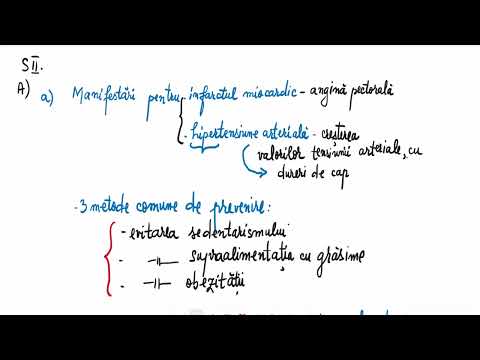 SII.
A) a) Manifestări pentru - infarctul miocardic - angină pectorală
- hipertensiune arterială - creșterea
valorilor tensiunii arteriale, cu
dureri de cap
- 3 metode comune de prevenire:
- evitarea sedentarismului
- —||— supraalimentația cu grăsime
- —||— obezității